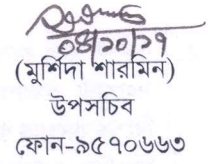 ০৪/১০/১৭
(মুর্শিদা শারমিন)
উপসচিব
ফোন-৯৫৭০৬৬৩